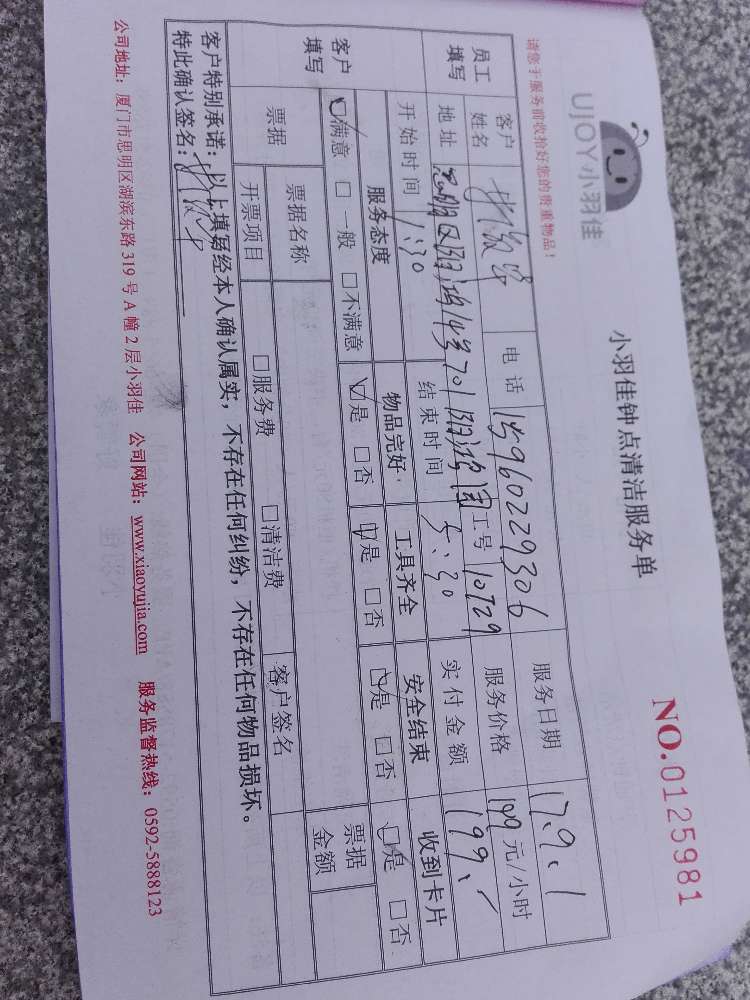 UJOY小羽佳
小羽佳钟点清洁服务单
NO.0125981
请您于服务前收拾好您的贵重物品！
员工填写 客户姓名 电话 15960229306 服务日期 17.9.1
地址 思明区阳鸿14号701阳鸿园 工号 10729 服务价格 199 元/小时
开始时间 1:30 结束时间 5:30 实付金额 199.
客户填写 服务态度 物品完好 工具齐全 安全结束 收到卡片
☑满意 □一般 □不满意 ☑是 □否 ☑是 □否 ☑是 □否 ☑是 □否
票据 票据名称 客户签名 票据金额
开票项目 □服务费 □清洁费
客户特别承诺：以上填写经本人确认属实，不存在任何纠纷，不存在任何物品损坏。
特此确认签名：
公司地址：厦门市思明区湖滨东路 319 号 A 幢 2 层小羽佳 公司网站：www.xiaoyujia.com 服务监督热线：0592-5888123